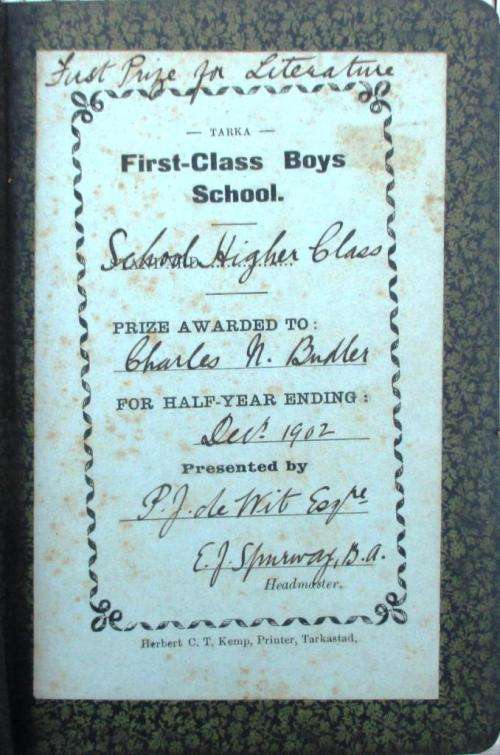 First Prize for Literature
— TARKA —
First-Class Boys
School.
School Higher Class
PRIZE AWARDED TO:
Charles N. Budler
FOR HALF-YEAR ENDING:
Decr. 1902
Presented by
P. J. de Wit Esqre
E. J. Spurway, B.A.
Headmaster.
Herbert C. T. Kemp, Printer, Tarkastad.